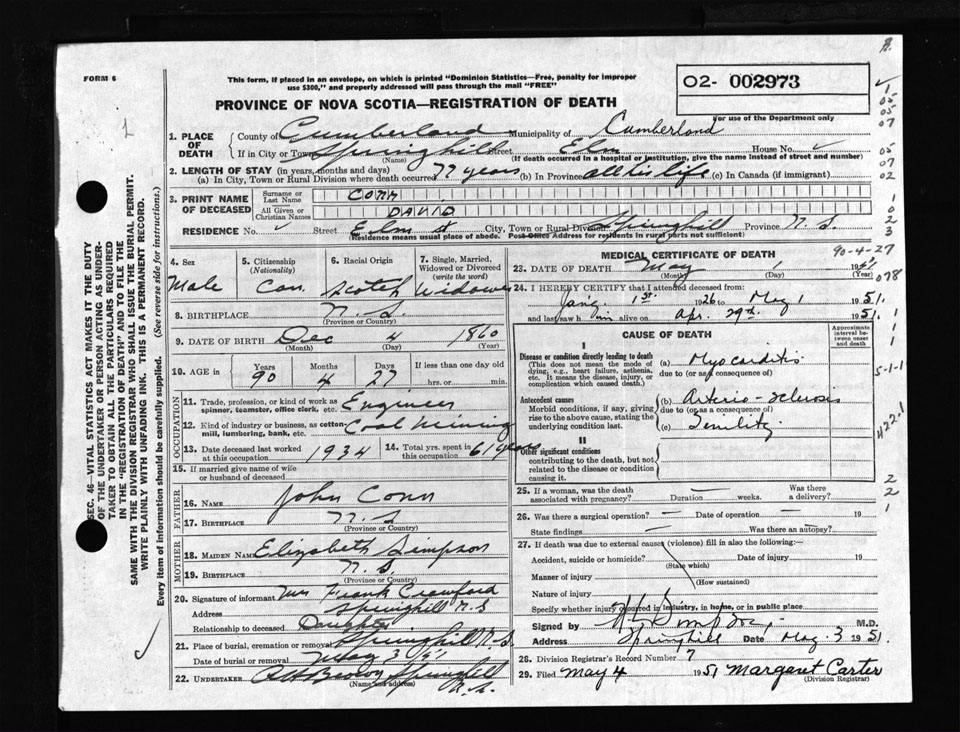 FORM 6
This form, if placed in an envelope, on which is printed "Dominion Statistics—Free, penalty for improper
use $300," and properly addressed will pass through the mail "FREE"
02- 002973
For use of the Department only
PROVINCE OF NOVA SCOTIA—REGISTRATION OF DEATH
1. PLACE OF DEATH
County of Cumberland Municipality of Cumberland
If in City or Town Springhill Street Elm House No.
(Name) (If death occurred in a hospital or institution, give the name instead of street and number)
2. LENGTH OF STAY (in years, months and days)
(a) In City, Town or Rural Division where death occurred 77 years (b) In Province all his life (c) In Canada (if immigrant)
3. PRINT NAME OF DECEASED
Surname or Last Name CONN
All Given or Christian Names DAVID
RESIDENCE No. Street Elm St City, Town or Rural Division Springhill Province N.S.
(Residence means usual place of abode. Post Office Address for residents in rural parts not sufficient)
4. Sex Male
5. Citizenship (Nationality) Can.
6. Racial Origin Scotch
7. Single, Married, Widowed or Divorced (write the word) Widower
8. BIRTHPLACE N.S.
(Province or Country)
9. DATE OF BIRTH Dec 4 1860
(Month) (Day) (Year)
10. AGE in Years 90 Months 4 Days 27 If less than one day
hrs. or min.
OCCUPATION
11. Trade, profession, or kind of work as spinner, teamster, office clerk, etc. Engineer
12. Kind of industry or business, as cotton mill, lumbering, bank, etc. Coal Mining
13. Date deceased last worked at this occupation 1934
14. Total yrs. spent in this occupation 61 years
15. If married give name of wife or husband of deceased
FATHER
16. NAME John Conn
17. BIRTHPLACE N.S.
(Province or Country)
MOTHER
18. MAIDEN NAME Elizabeth Simpson
19. BIRTHPLACE N.S.
(Province or Country)
20. Signature of informant Mrs Frank Crawford
Address Springhill N.S
Relationship to deceased Daughter
21. Place of burial, cremation or removal Springhill N.S.
Date of burial or removal May 3 / 51
22. UNDERTAKER Springhill N.S.
(Name and address)
MEDICAL CERTIFICATE OF DEATH
90-4-27
23. DATE OF DEATH May 1 1951
(Month) (Day) (Year)
24. I HEREBY CERTIFY that I attended deceased from:
Jan'y. 1st. 1926 to May 1 1951.
and last saw him alive on Apr. 29th. 1951.
CAUSE OF DEATH
Approximate interval between onset and death
I
Disease or condition directly leading to death
(This does not mean the mode of dying, e.g., heart failure, asthenia, etc. It means the disease, injury, or complication which caused death.)
(a) Myocarditis
due to (or as consequence of)
Antecedent causes
Morbid conditions, if any, giving rise to the above cause, stating the underlying condition last.
(b) Arterio-sclerosis
due to (or as a consequence of)
(c) Senility.
II
Other significant conditions
contributing to the death, but not related to the disease or condition causing it.
25. If a woman, was the death associated with pregnancy? Duration weeks. Was there a delivery?
26. Was there a surgical operation? — Date of operation — 19
State findings — Was there an autopsy?
27. If death was due to external causes (violence) fill in also the following:—
Accident, suicide or homicide? Date of injury 19
(State which)
Manner of injury
(How sustained)
Nature of injury
Specify whether injury occurred in industry, in home, or in public place
Signed by M.D.
Address Springhill Date May 3 1951.
28. Division Registrar's Record Number 7
29. Filed May 4 1951 Margaret Carter
(Division Registrar)
SEC. 46—VITAL STATISTICS ACT MAKES IT THE DUTY
OF THE UNDERTAKER OR PERSON ACTING AS UNDER-
TAKER TO OBTAIN ALL THE PARTICULARS REQUIRED
IN THE "REGISTRATION OF DEATH" AND TO FILE THE
SAME WITH THE DIVISION REGISTRAR WHO SHALL ISSUE THE BURIAL PERMIT.
WRITE PLAINLY WITH UNFADING INK. THIS IS A PERMANENT RECORD.
Every item of information should be carefully supplied. (See reverse side for instructions.)
1
05
05
07
05
07
02
1
0
2
3
078
1
1
1
5-1-1
422.1
2
2
1